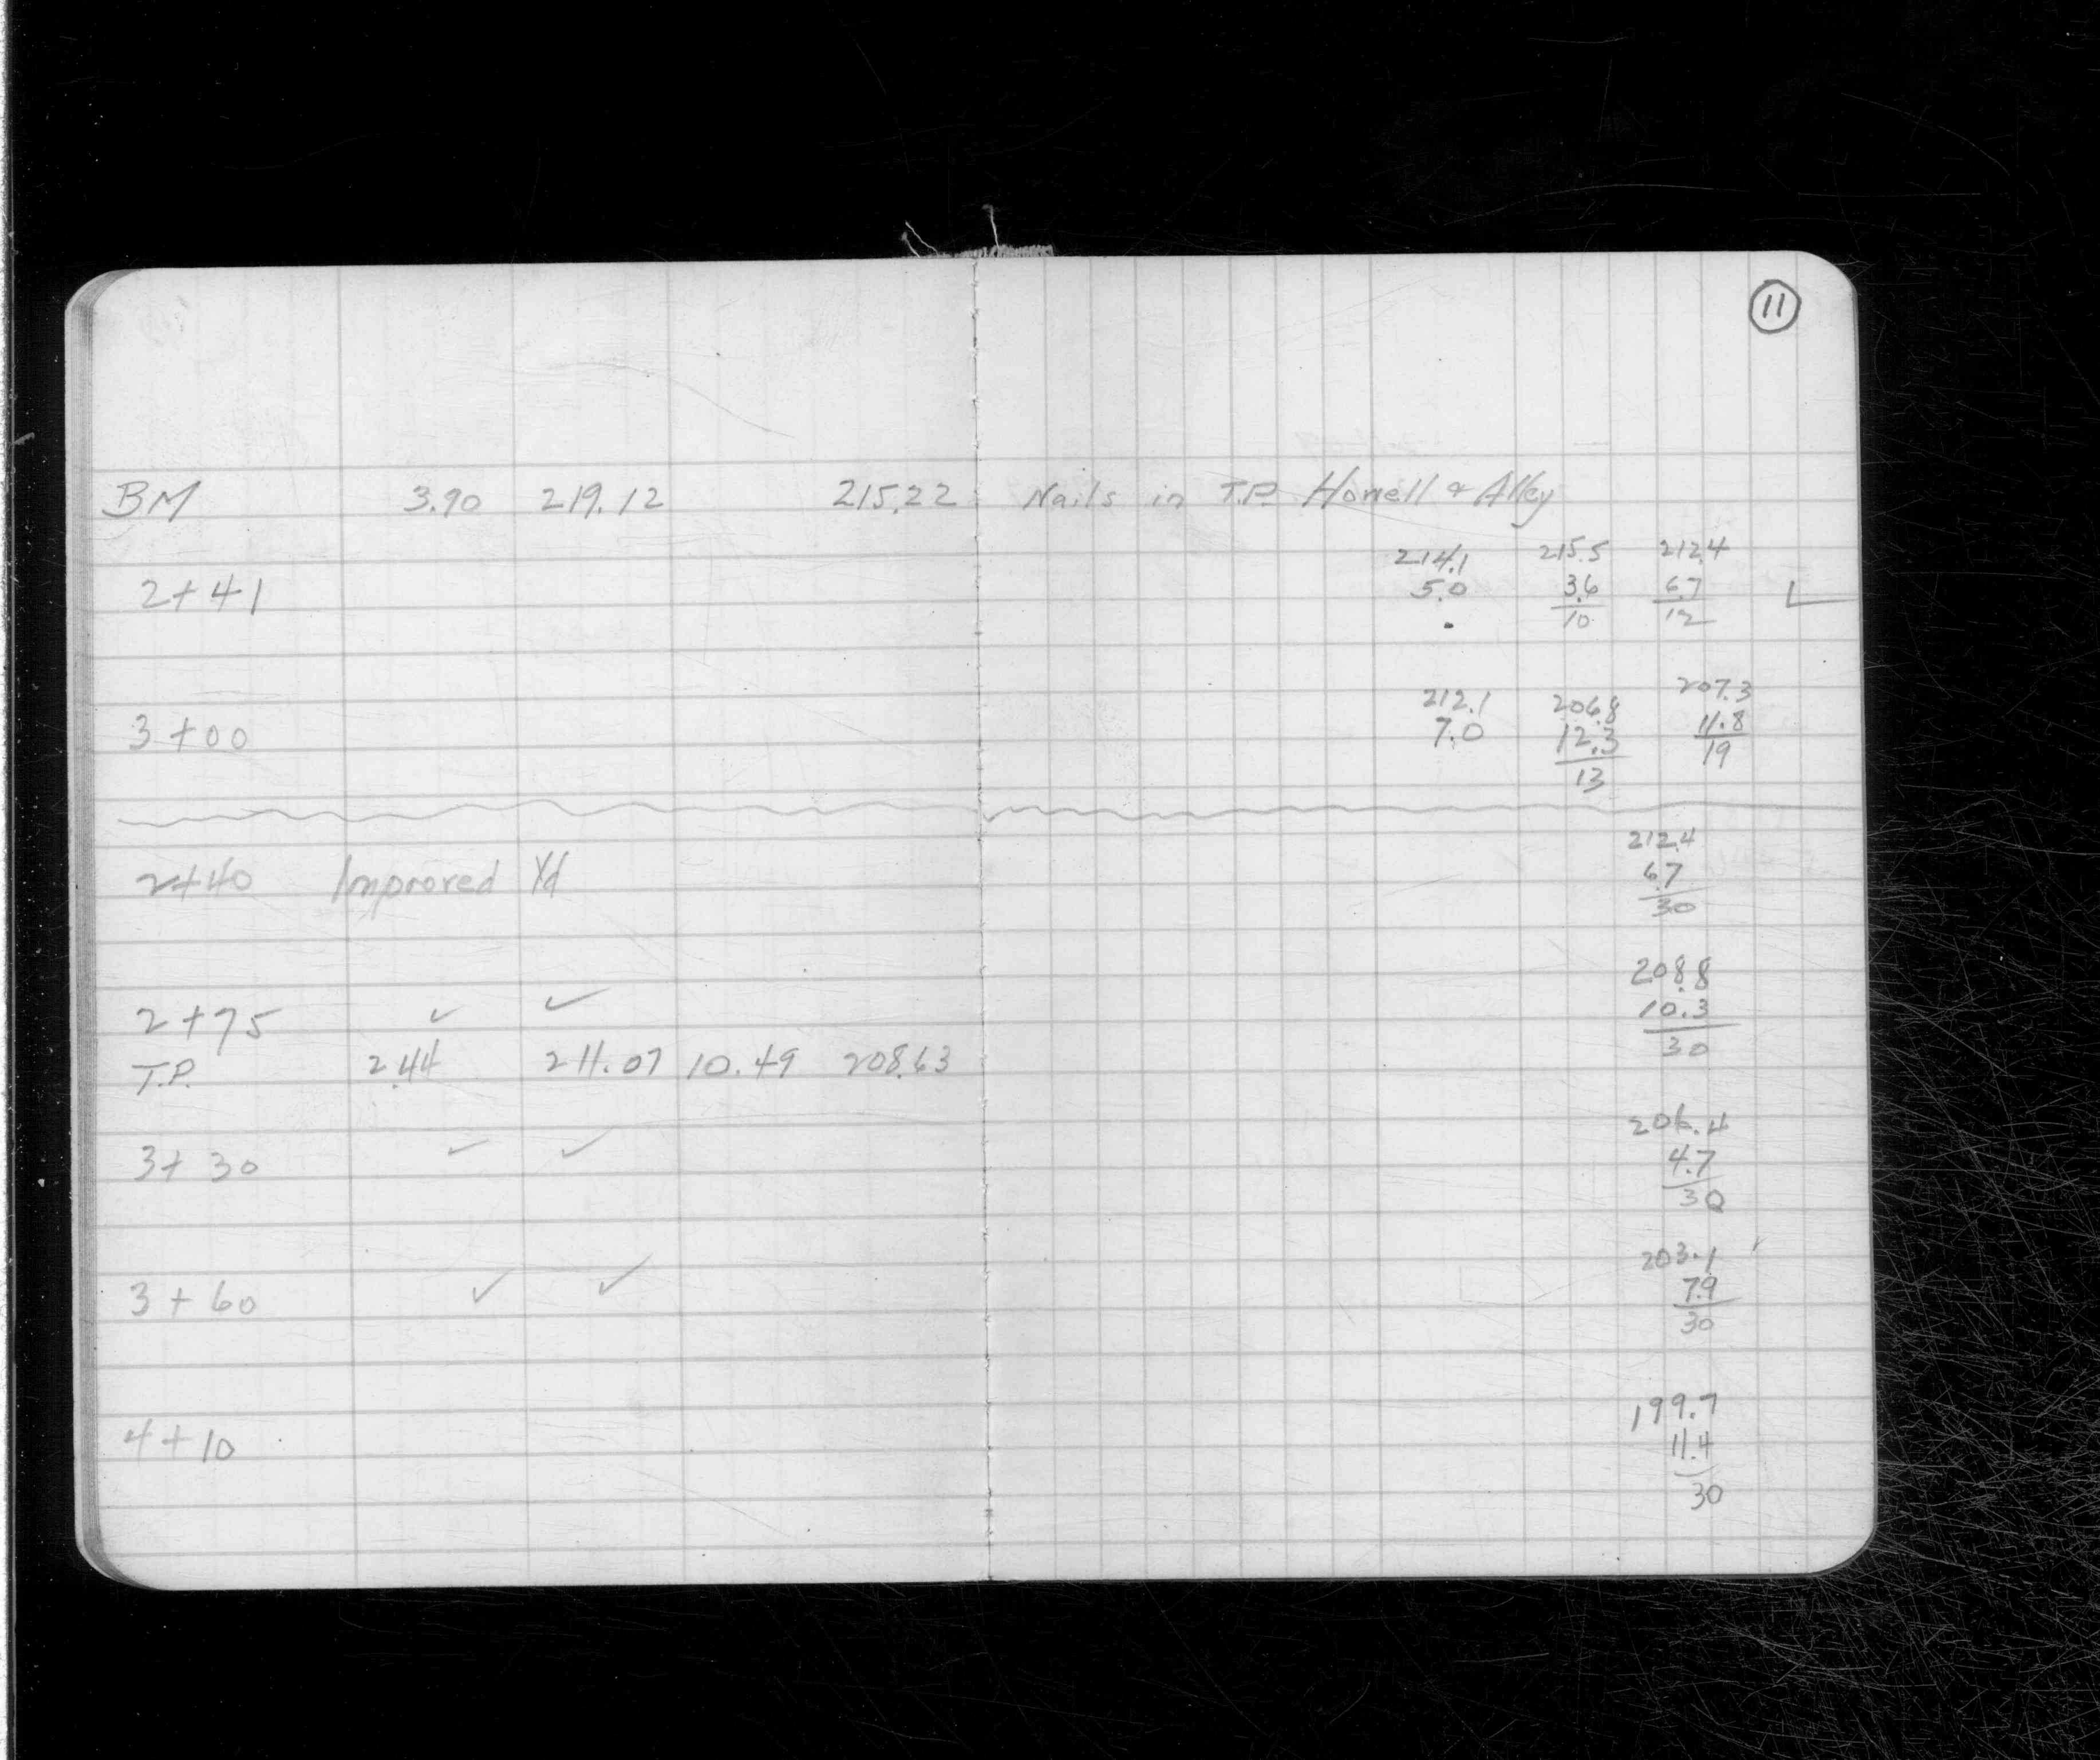 11
BM 3.90 219.12 215.22 Nails in T.P. Howell & Alley
214.1 215.5 212.4
2+41 5.0 3.6 6.7
10 12
212.1 206.8 207.3
3+00 7.0 12.3 11.8
13 19
212.4
2+40 Improved Yd 6.7
30
208.8
2+75 ✓ ✓ 10.3
30
T.P. 2.44 211.07 10.49 208.63
206.4
3+30 ✓ ✓ 4.7
30
203.1
3+60 ✓ ✓ 7.9
30
199.7
4+10 11.4
30